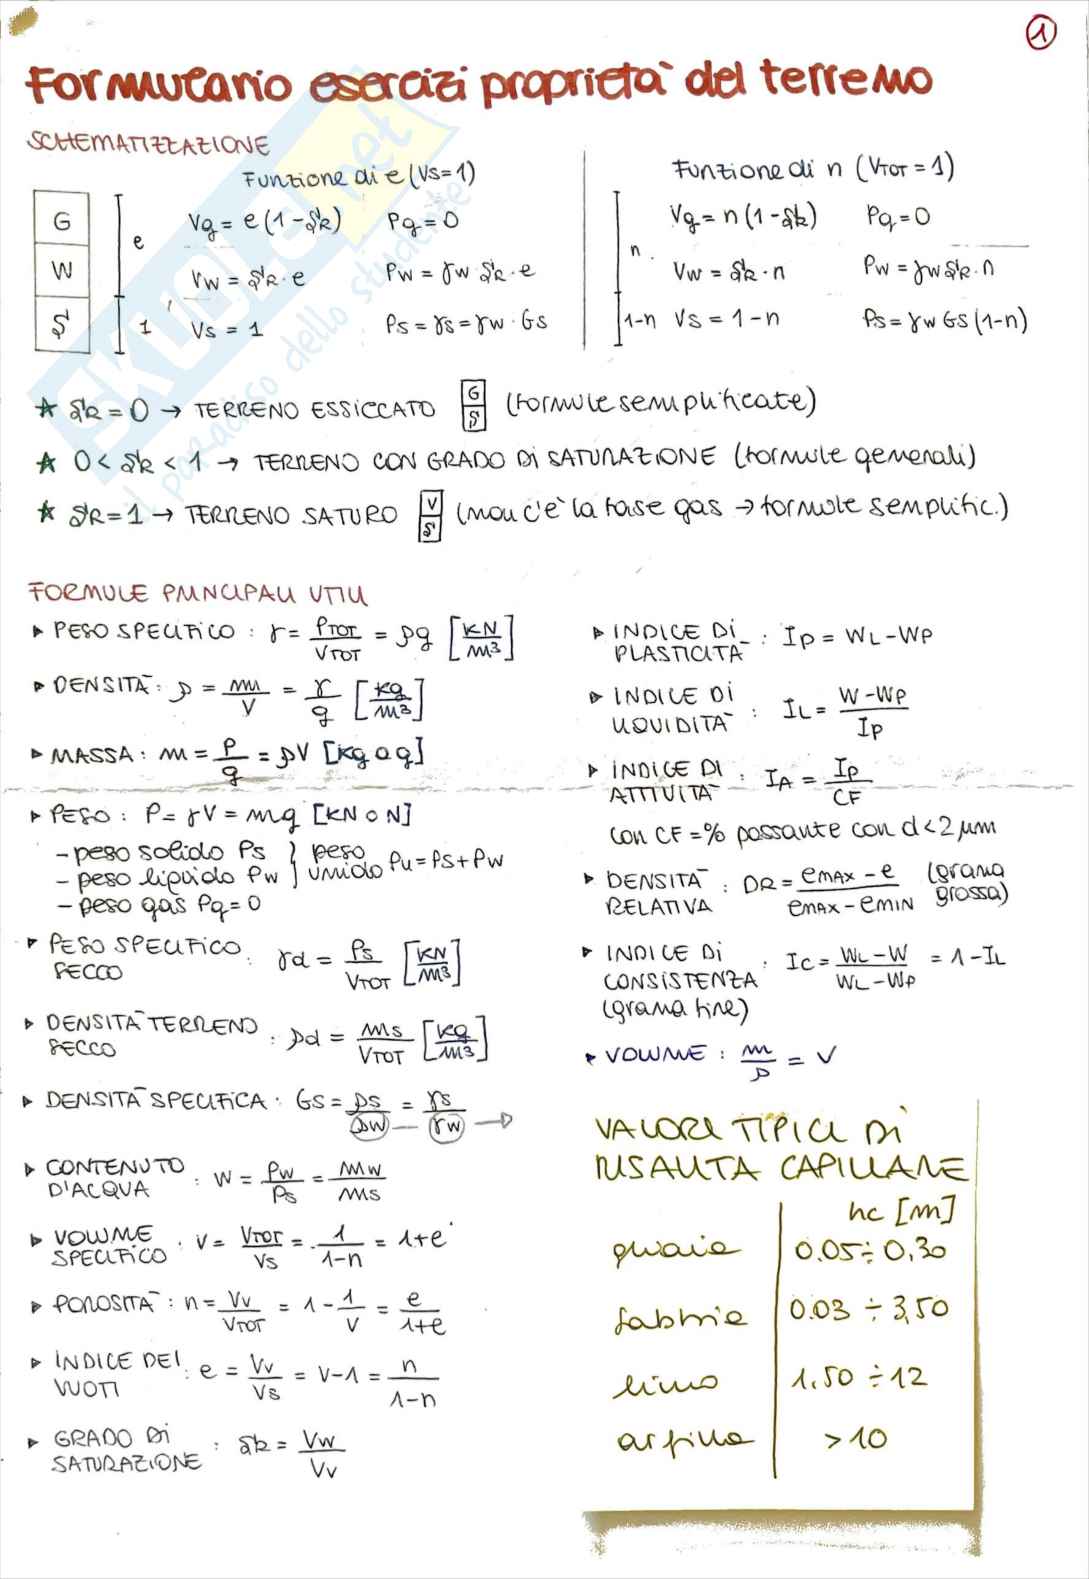 1
Formulario esercizi proprietà del terreno
SCHEMATIZZAZIONE
Funzione di e (Vs=1)
G
W
S
e
1
Vg = e (1-Sr) Pg = 0
Vw = Sr · e Pw = γw Sr · e
Vs = 1 Ps = γs = γw · Gs
Funzione di n (VTOT = 1)
n
1-n
Vg = n (1-Sr) Pg = 0
Vw = Sr · n Pw = γw Sr · n
Vs = 1-n Ps = γw Gs (1-n)
★ Sr = 0 → TERRENO ESSICCATO G S (formule semplificate)
★ 0 < Sr < 1 → TERRENO CON GRADO DI SATURAZIONE (formule generali)
★ Sr = 1 → TERRENO SATURO V S (non c'è la fase gas → formule semplific.)
FORMULE PRINCIPALI UTILI
▸ PESO SPECIFICO : γ = PTOT / VTOT = ρg [KN/m³]
▸ DENSITÀ : ρ = m / V = γ / g [kg/m³]
▸ MASSA : m = P / g = ρV [kg o g]
▸ PESO : P = γV = mg [KN o N]
- peso solido Ps
- peso liquido Pw } peso umido Pu = Ps + Pw
- peso gas Pg = 0
▸ PESO SPECIFICO SECCO : γd = Ps / VTOT [KN/m³]
▸ DENSITÀ TERRENO SECCO : ρd = ms / VTOT [kg/m³]
▸ DENSITÀ SPECIFICA : Gs = ρs / ρw = γs / γw →
▸ CONTENUTO D'ACQUA : W = Pw / Ps = mw / ms
▸ VOLUME SPECIFICO : v = VTOT / Vs = 1 / 1-n = 1+e
▸ POROSITÀ : n = Vv / VTOT = 1 - 1 / v = e / 1+e
▸ INDICE DEI VUOTI : e = Vv / Vs = v-1 = n / 1-n
▸ GRADO DI SATURAZIONE : Sr = Vw / Vv
▸ INDICE DI PLASTICITÀ : Ip = WL - WP
▸ INDICE DI LIQUIDITÀ : IL = W - WP / Ip
▸ INDICE DI ATTIVITÀ : IA = Ip / CF
con CF = % passante con d < 2 μm
▸ DENSITÀ RELATIVA : DR = eMAX - e / eMAX - eMIN (grana grossa)
▸ INDICE DI CONSISTENZA (grana fine) : Ic = WL - W / WL - WP = 1 - IL
▸ VOLUME : m / ρ = V
VALORI TIPICI DI
RISALITA CAPILLARE
hc [m]
ghiaie 0.05 ÷ 0,30
sabbie 0.03 ÷ 3,50
limo 1.50 ÷ 12
argilla > 10
SKUOLA.net
il paradiso dello studente